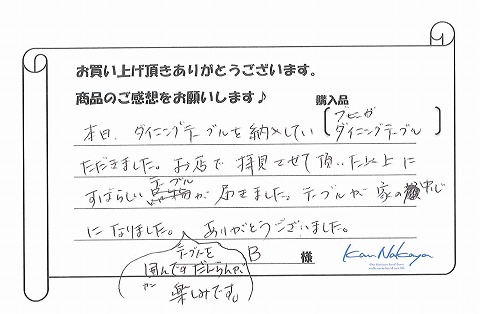 お買い上げ頂きありがとうございます。
商品のご感想をお願いします♪
購入品
ブビンガ
ダイニングテーブル
本日、ダイニングテーブルを納めてい
ただきました。お店で拝見させて頂いた以上に
テーブル
すばらしい が届きました。テーブルが家の中心
になりました。ありがとうございました。
テーブルを
囲んでのだんらんが
楽しみです。
B 様
Kan Nakaya